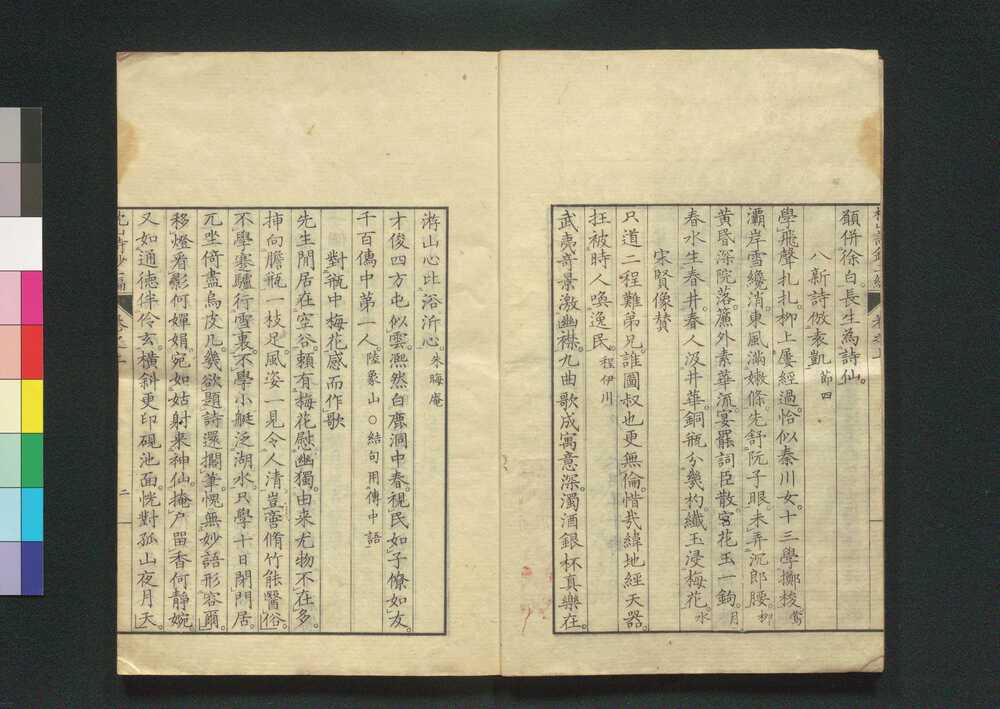 願併徐白長生為詩仙。
八新詩倣袁凱 節四
學飛聲扎扎。柳上屢經過。恰似秦川女。十三學擲梭。鶯
灞岸雪纔消。東風滿嫩條。先舒阮子眼。未弄沉郎腰。柳
黃昏深院落。簾外素華流。宴罷詞臣散。宮花玉一鉤。月
春水生春井。春人汲井華。銅瓶分幾杓。纖玉浸梅花。水
宋賢像贊
只道二程難弟兄。誰圖叔也更無倫。惜哉緯地經天器。
抂被時人喚逸民。程伊川
武夷奇景激幽襟。九曲歌成寓意深。濁酒銀杯真樂在。
游山心比浴沂心。朱晦庵
才俊四方屯似雲。熙然白鹿洞中春。視民如子僚如友。
千百儔中第一人。陸象山○結句用傳中語
對瓶中梅花感而作歌
先生閒居在空谷。賴有梅花慰幽獨。由来尤物不在多。
挿向膽瓶一枝足。風姿一見令人清。豈啻脩竹能醫俗。
不學蹇驢行雪裏。不學小艇泛湖水。只學十日閉門居。
兀坐倚盡烏皮几。幾欲題詩還擱筆。愧無妙語形容爾。
移燈看影何嬋娟。宛如姑射来神仙。掩户留香何静婉。
又如通德伴伶玄。橫斜更印硯池面。恍對孤山夜月天。